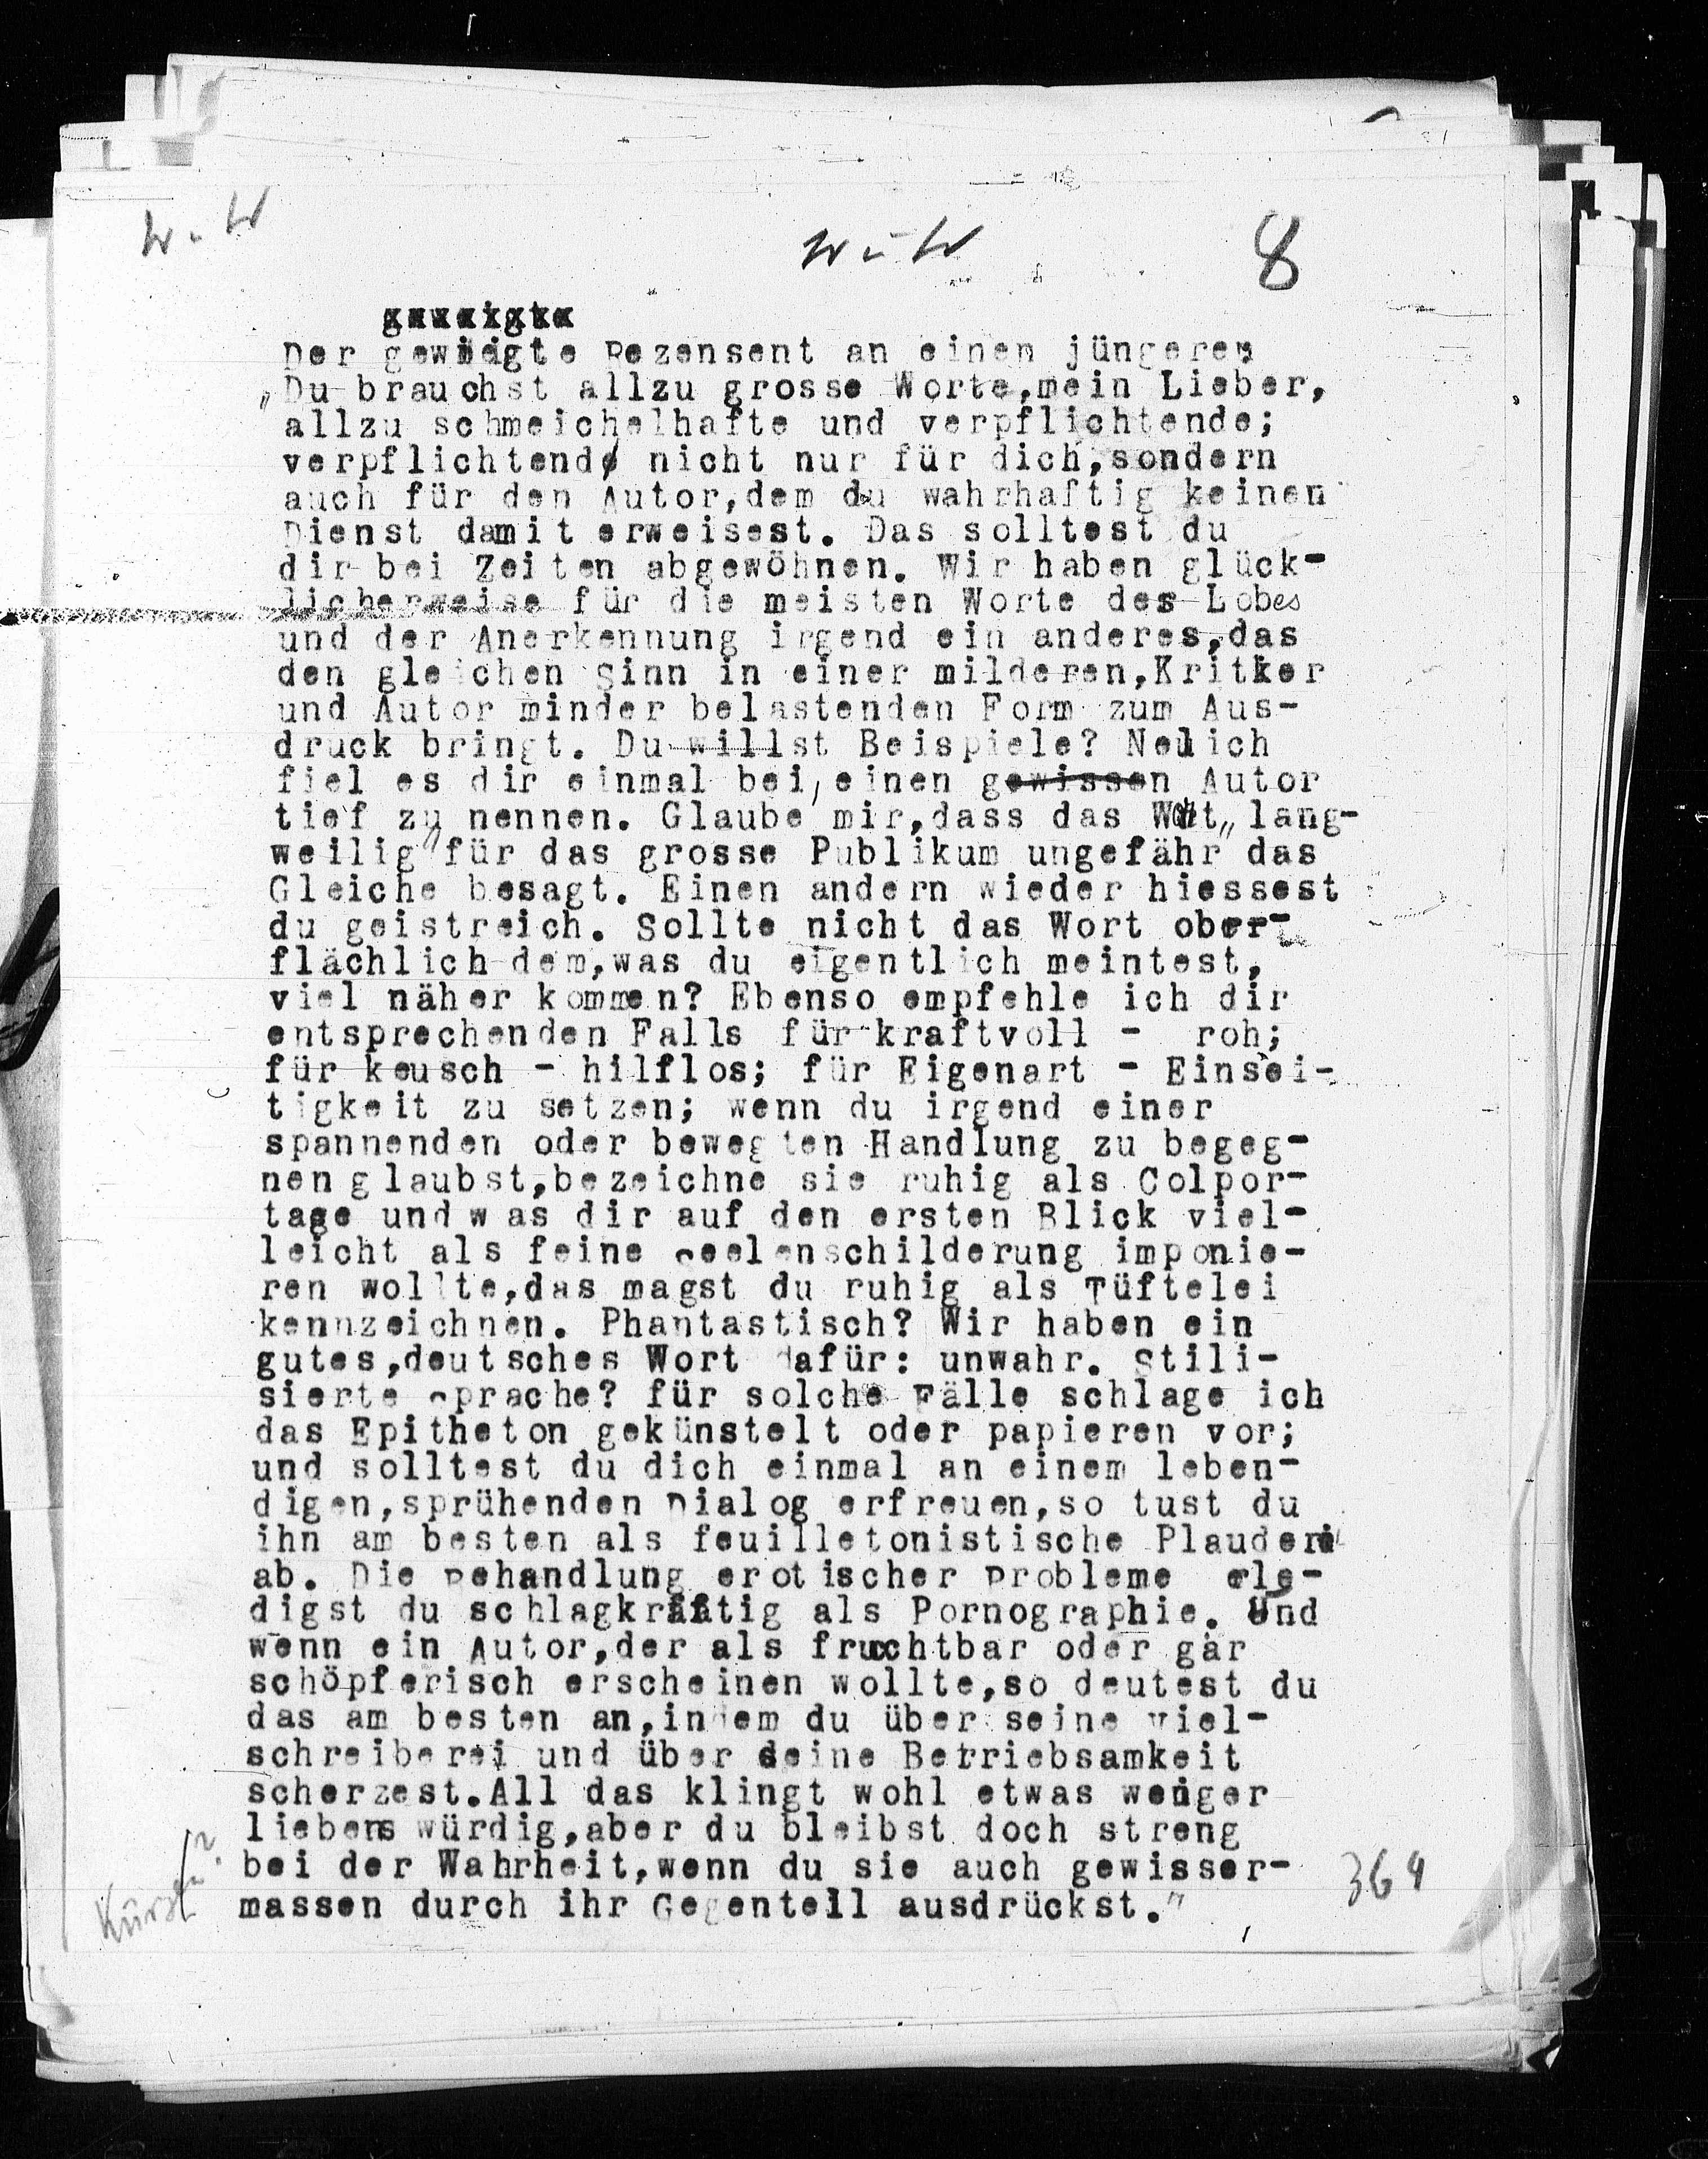 W u W
W u W
8
Der gewiegte Rezensent an einen jüngeren
„Du brauchst allzu grosse Worte,mein Lieber,
allzu schmeichelhafte und verpflichtende;
verpflichtend nicht nur für dich,sondern
auch für den Autor,dem du wahrhaftig keinen
Dienst damit erweisest. Das solltest du
dir bei Zeiten abgewöhnen. Wir haben glück-
licherweise für die meisten Worte des Lobes
und der Anerkennung irgend ein anderes,das
den gleichen Sinn in einer milderen,Kritker
und Autor minder belastenden Form zum Aus-
druck bringt. Du willst Beispiele? Neulich
fiel es dir einmal bei, einen gewissen Autor
tief zu nennen. Glaube mir,dass das Wort „lang-
weilig" für das grosse Publikum ungefähr das
Gleiche besagt. Einen andern wieder hiessest
du geistreich. Sollte nicht das Wort ober-
flächlich dem,was du eigentlich meintest,
viel näher kommen? Ebenso empfehle ich dir
entsprechenden Falls für kraftvoll - roh;
für keusch - hilflos; für Eigenart - Einsei-
tigkeit zu setzen; wenn du irgend einer
spannenden oder bewegten Handlung zu begeg-
nen glaubst,bezeichne sie ruhig als Colpor-
tage und was dir auf den ersten Blick viel-
leicht als feine Seelenschilderung imponie-
ren wollte,das magst du ruhig als Tüftelei
kennzeichnen. Phantastisch? Wir haben ein
gutes,deutsches Wort dafür: unwahr. Stili-
sierte Sprache? für solche Fälle schlage ich
das Epitheton gekünstelt oder papieren vor;
und solltest du dich einmal an einem leben-
digen,sprühenden Dialog erfreuen,so tust du
ihn am besten als feuilletonistische Plauderei
ab. Die Behandlung erotischer Probleme erle-
digst du schlagkräftig als Pornographie. Und
wenn ein Autor,der als fruchtbar oder gar
schöpferisch erscheinen wollte,so deutest du
das am besten an,indem du über seine Viel-
schreiberei und über seine Betriebsamkeit
scherzest.All das klingt wohl etwas weniger
liebenswürdig,aber du bleibst doch streng
bei der Wahrheit,wenn du sie auch gewisser-
massen durch ihr Gegenteil ausdrückst."
Kürzen?
364